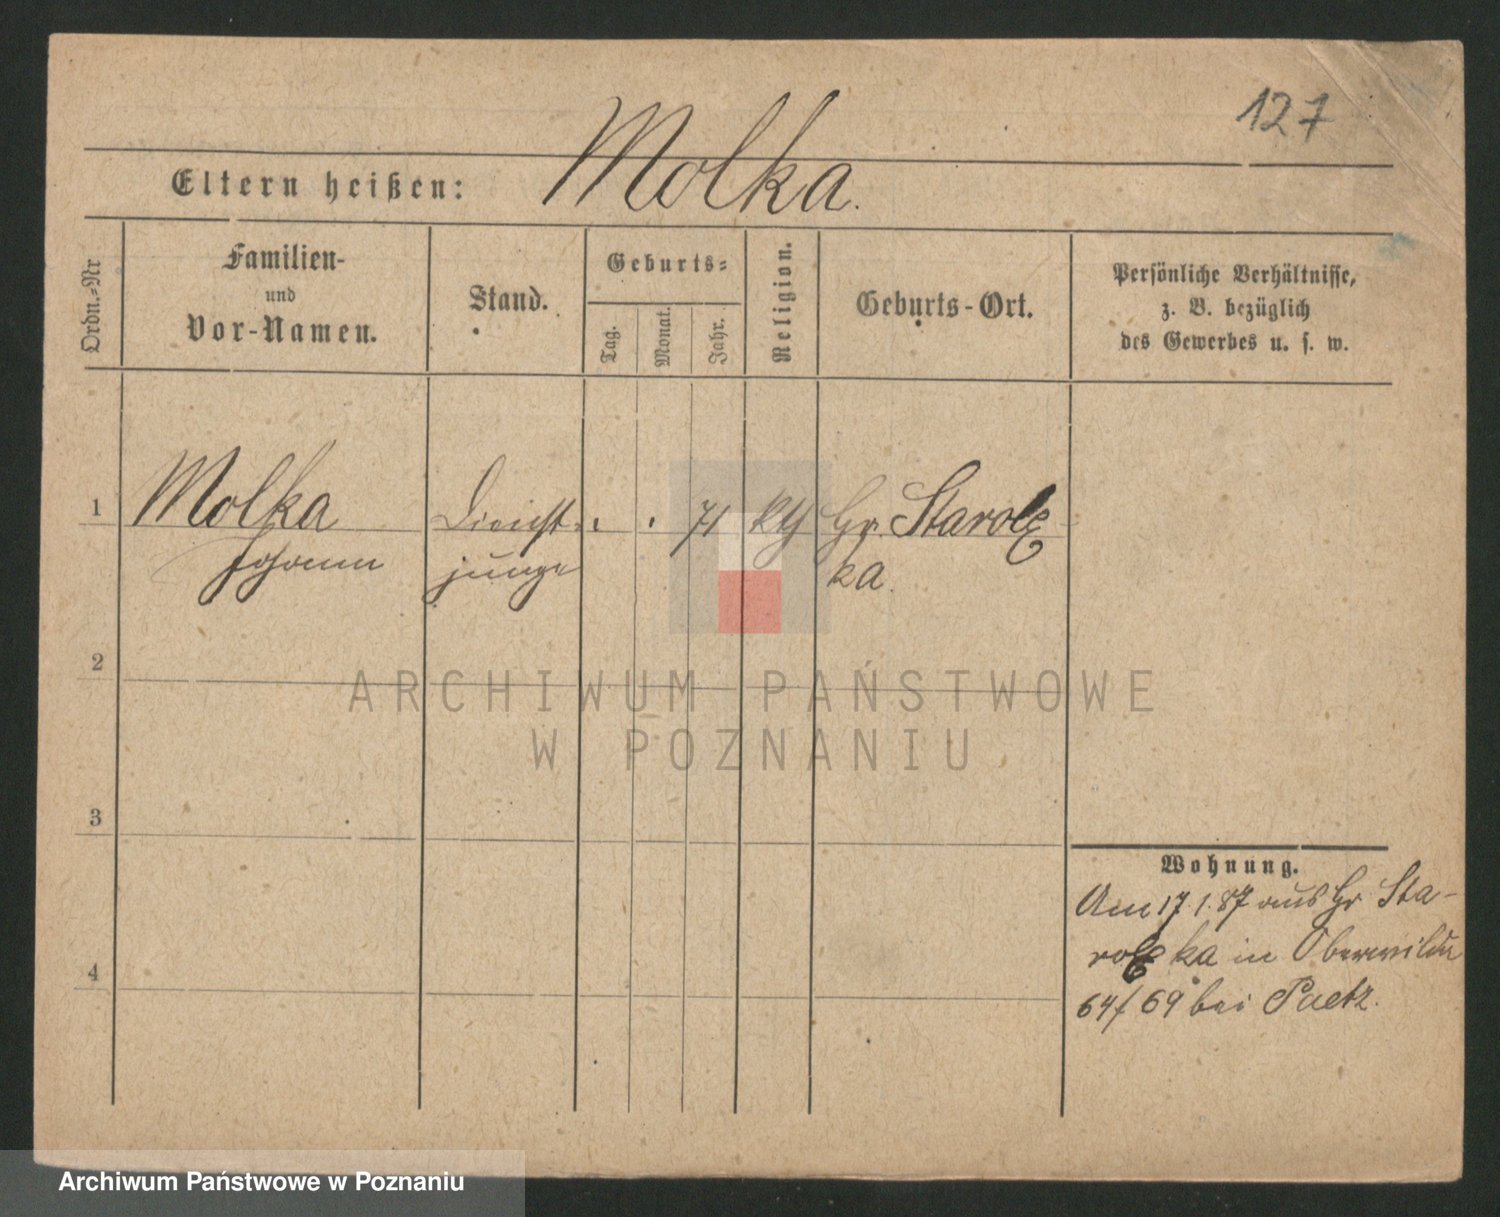 127
Eltern heißen: Molka.
Ordn.-Nr
Familien-
und
Vor-Namen.
Stand.
Geburts-
Tag.
Monat.
Jahr.
Religion.
Geburts-Ort.
Persönliche Verhältnisse,
z. B. bezüglich
des Gewerbes u. s. w.
1 Molka Dienst- 71 kth Gr. Starolę
Johann junge ka.
2
ARCHIWUM PAŃSTWOWE
W POZNANIU
3
Wohnung.
Am 17.1.87 aus Gr Sta-
rolęka in Oberwilda
4
64/69 bei Paetz.
Archiwum Państwowe w Poznaniu